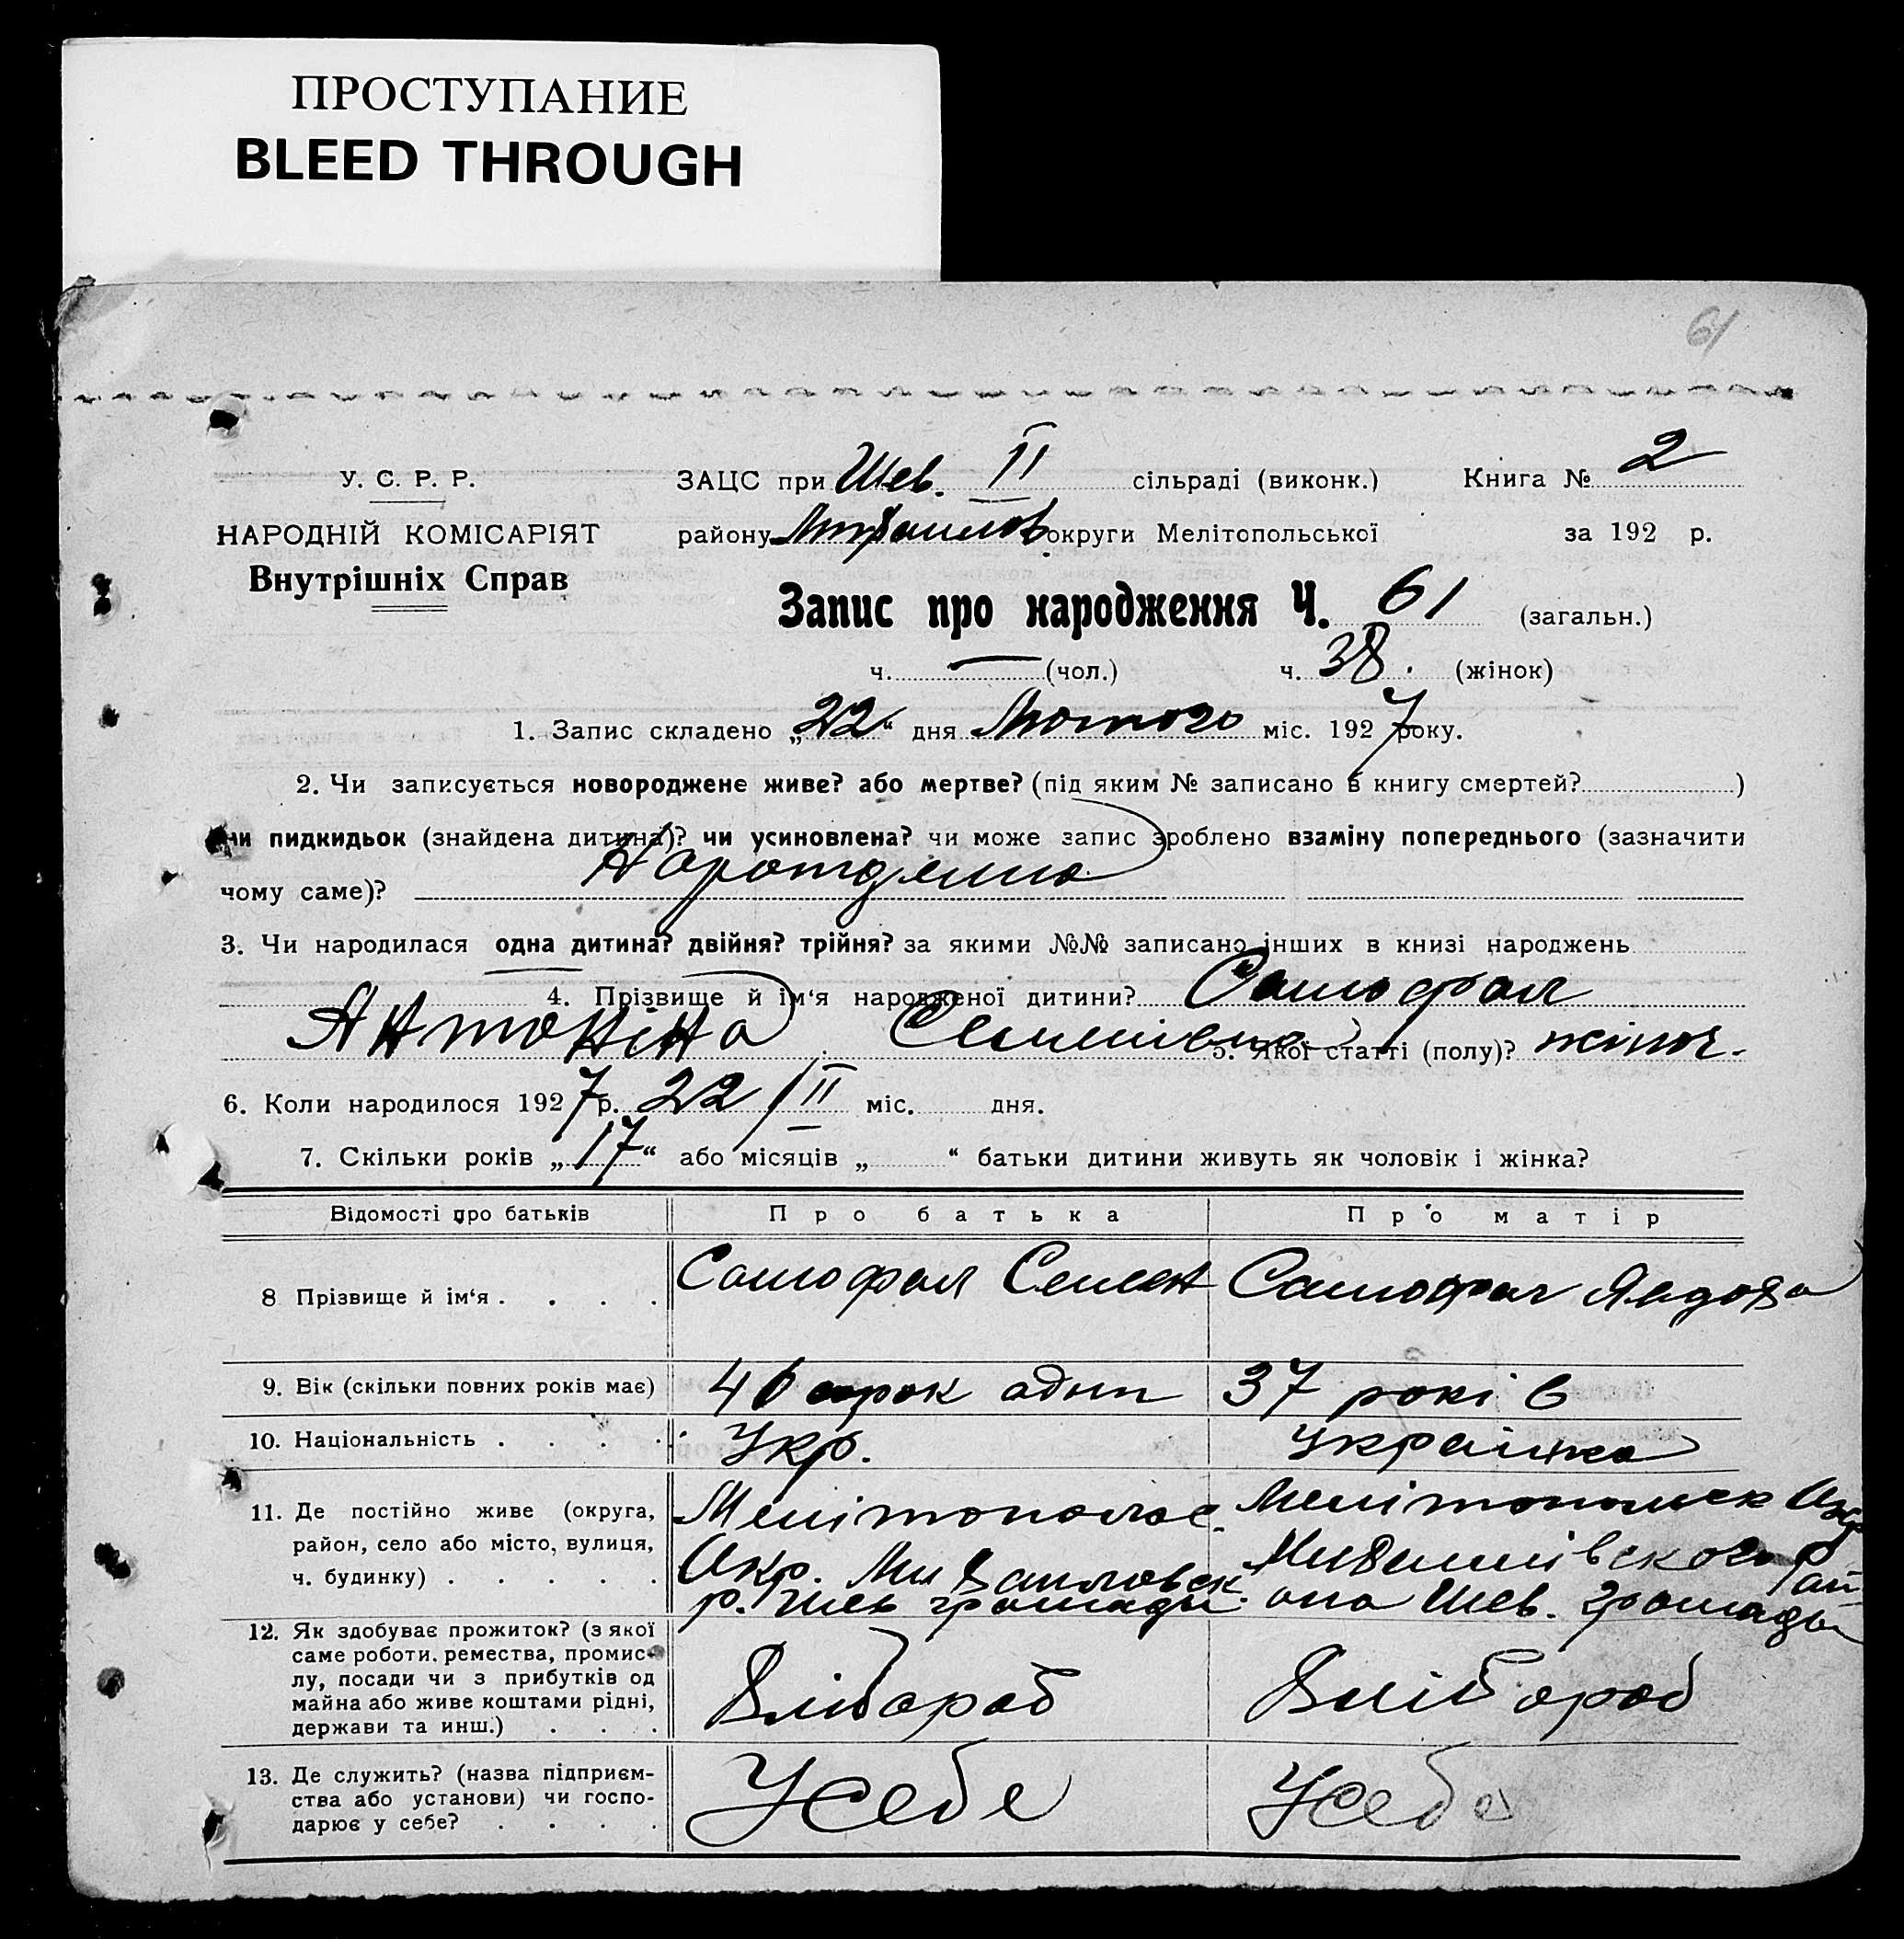 ПРОСТУПАНИЕ
BLEED THROUGH
61
У. С. Р. Р.
ЗАЦС при Шев. II сільраді (виконк.) Книга № 2
НАРОДНІЙ КОМІСАРІЯТ
району округи Мелітопольської за 192 р.
Внутрішніх Справ
Запис про народження Ч. 61 (загальн.)
ч. — (чол.) ч. 38. (жінок)
1. Запис складено „22“ дня Лютого міс. 1927 року.
2. Чи записується новороджене живе? або мертве? (під яким № записано в книгу смертей? )
чи пидкидьок (знайдена дитина)? чи усиновлена? чи може запис зроблено взаміну попереднього (зазначити
чому саме)?
3. Чи народилася одна дитина? двійня? трійня? за якими №№ записано інших в книзі народжень
4. Прізвище й ім‘я народженої дитини? Самофал
Антоніна Семенівна 5. Якої статті (полу)? жіноч.
6. Коли народилося 1927 р. 22/II міс. дня.
7. Скільки років „17“ або місяців „ “ батьки дитини живуть як чоловік і жінка?
Відомості про батьків Про батька Про матір
8 Прізвище й ім‘я . . . . Самофал Семен Самофал Явдоха
9. Вік (скільки повних років має) 41 сорок один 37 років
10. Національність . . . . Укр. Українка
11. Де постійно живе (округа,
район, село або місто, вулиця,
ч. будинку) . . . . .
Мелітопольс.
Окр. Михайловск.
р. Шев громади.
Мелітопольск Окр
Михайлівского рай
она Шев. громади
12. Як здобуває прожиток? (з якої
саме роботи, ремества, промис-
лу, посади чи з прибутків од
майна або живе коштами рідні,
держави та инш.) . . .
Хлібороб Хлібороб
13. Де служить? (назва підприєм-
ства або установи) чи госпо-
дарює у себе? . . . .
У себе У себе